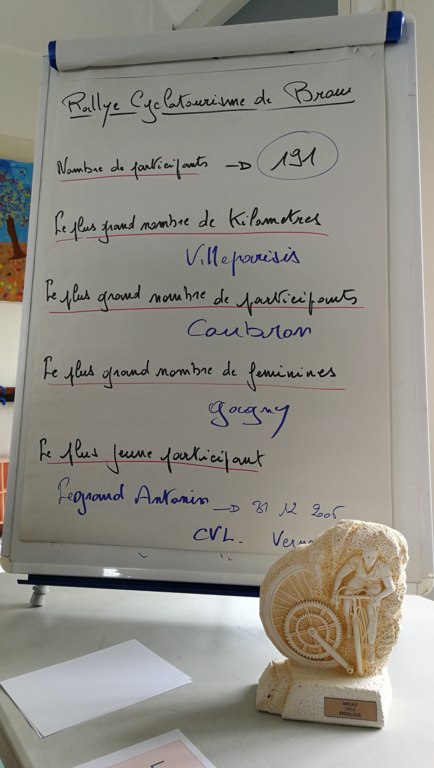 Rallye Cyclotourisme de Brou
Nombre de participants → 191
Le plus grand nombre de Kilometres
Villeparisis
Le plus grand nombre de participants
Coubron
Le plus grand nombre de feminines
gagny
Le plus jeune participant
Legrand Antonin → 31 12 2005
CVL.
AMICALE
CYCLO
BREUILLOISE